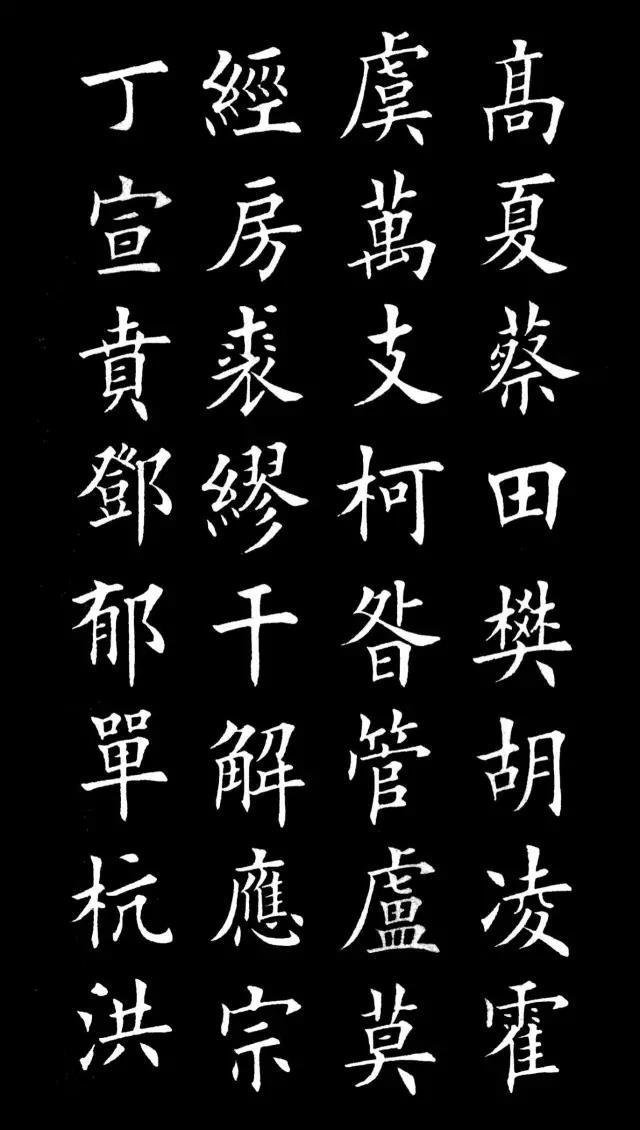 髙夏蔡田樊胡凌霍
虞萬支柯昝管盧莫
經房裘繆干解應宗
丁宣賁鄧郁單杭洪